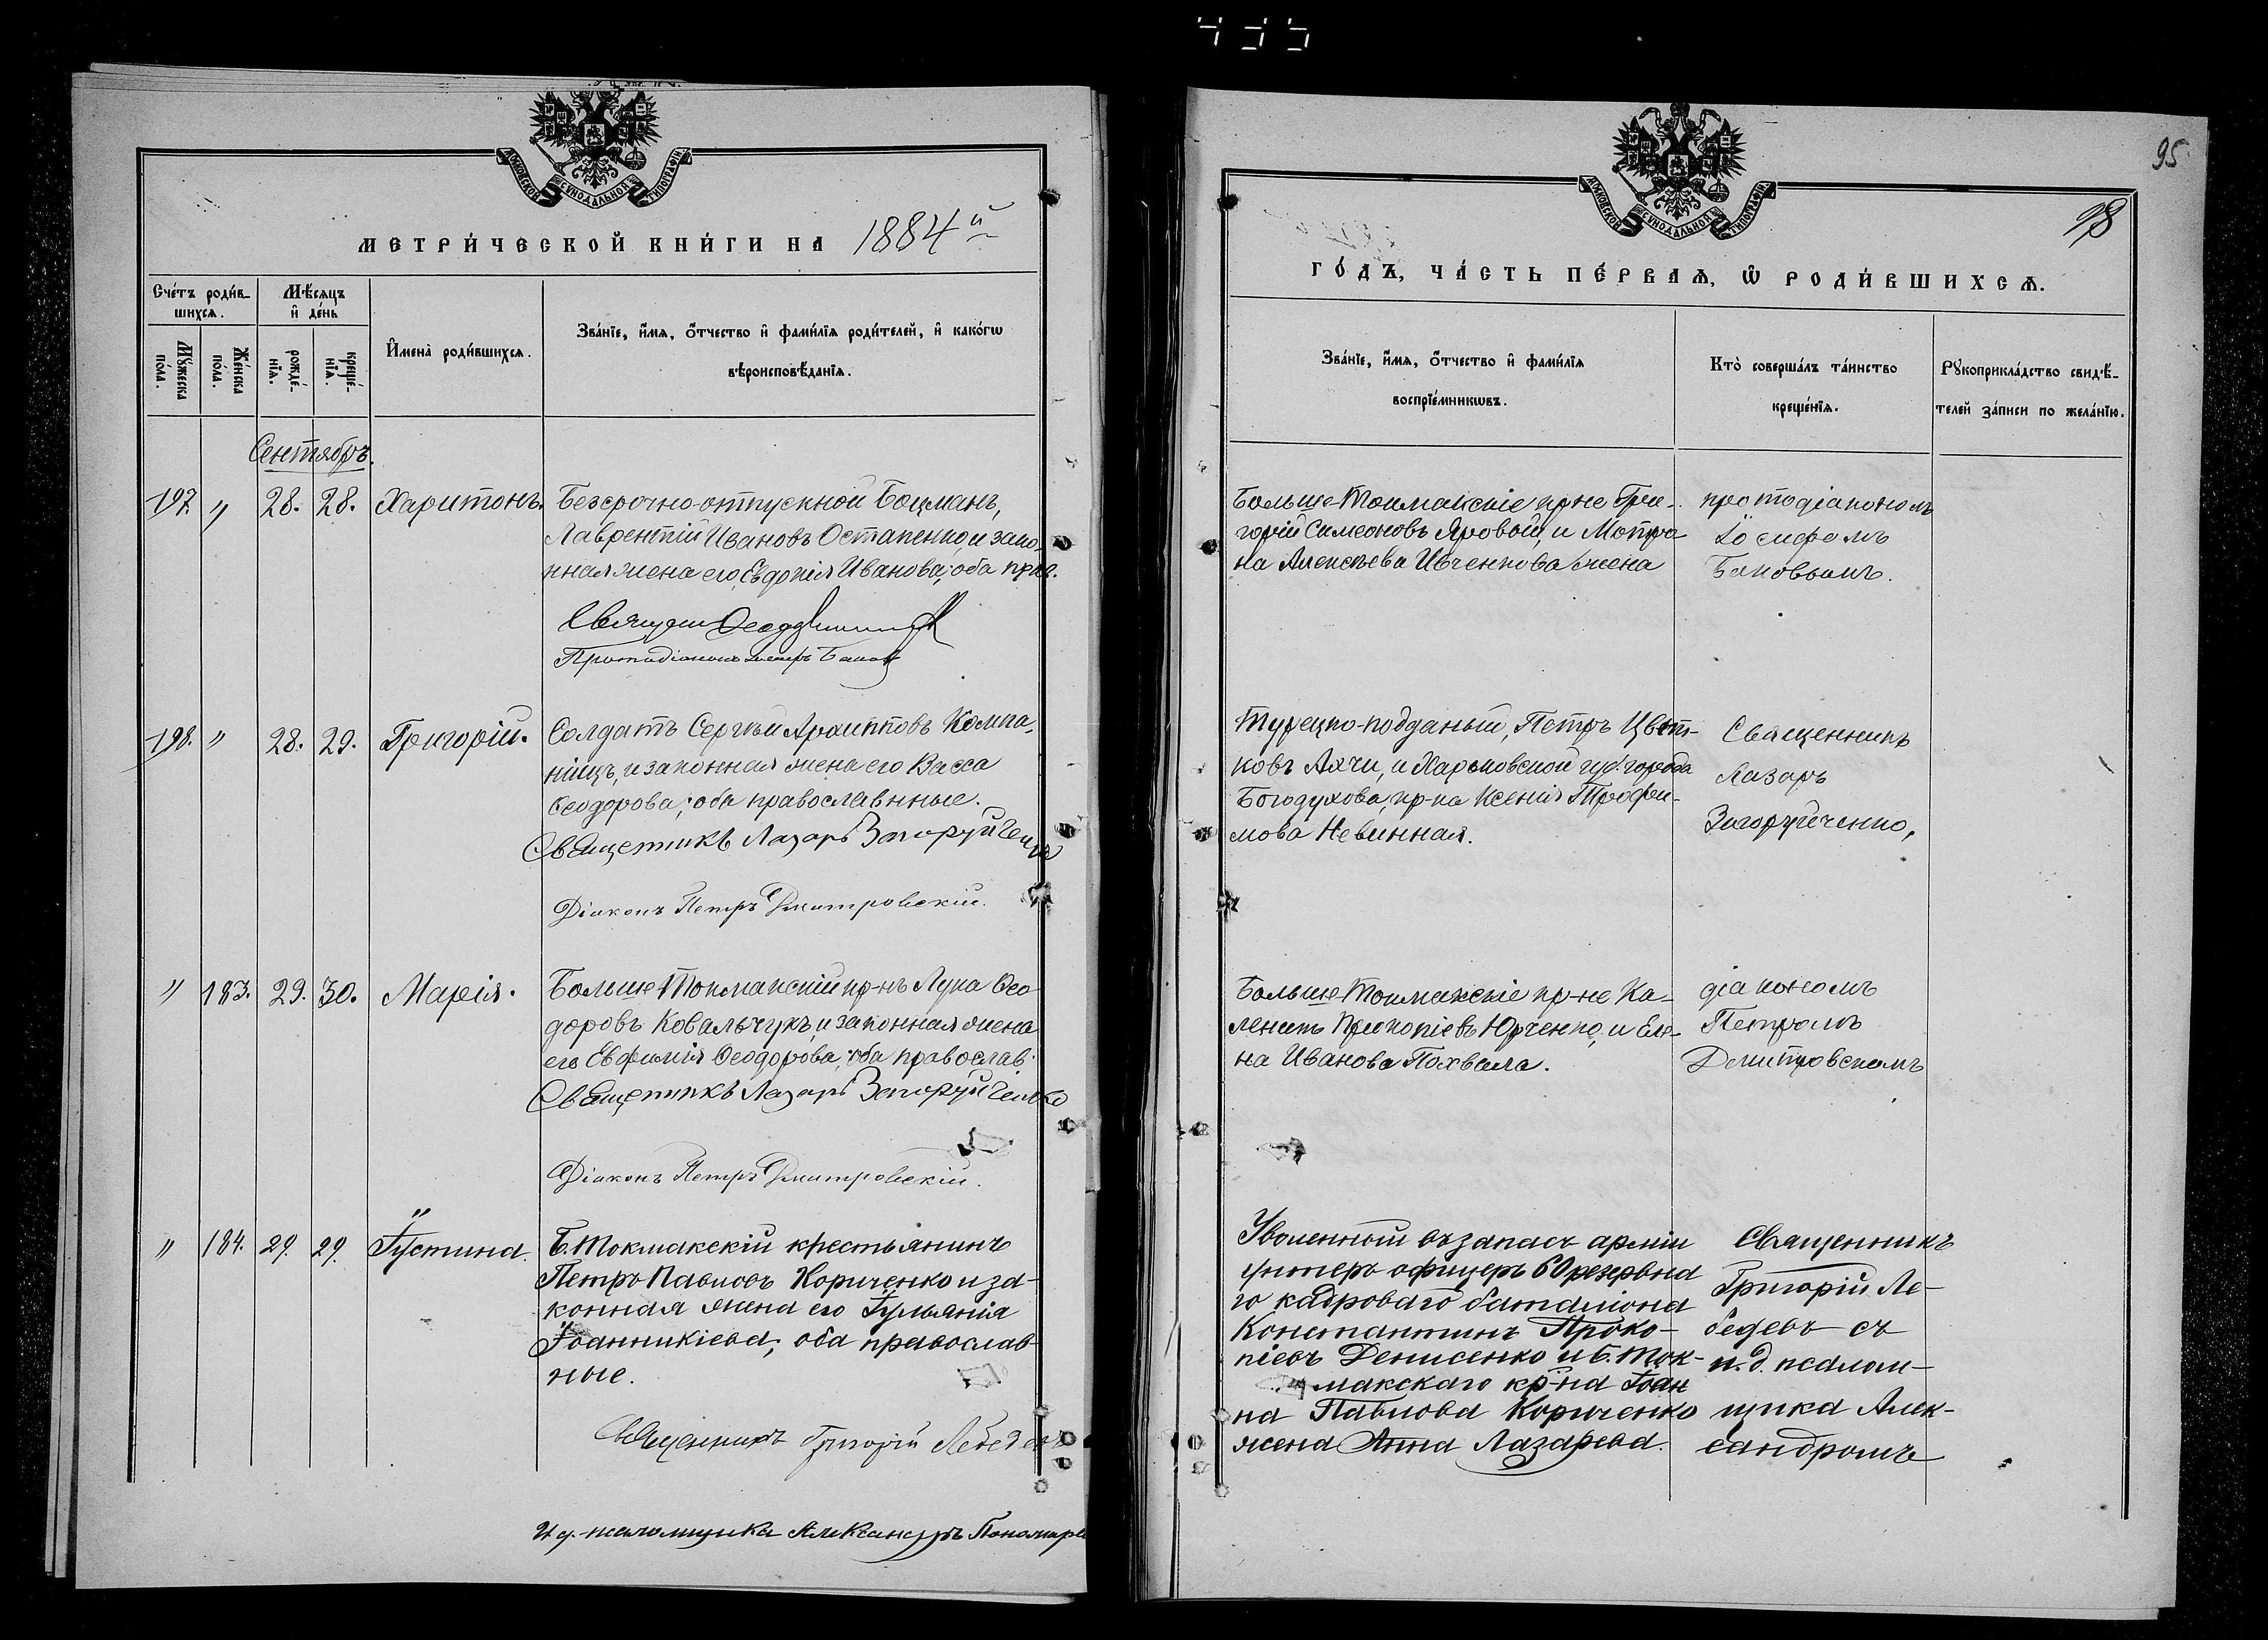 95
98
МОСКОВСКОЙ СѴНОДАЛЬНОЙ ТИПОГРАФІИ
МЕТРИ́ЧЕСКОЙ КНИ́ГИ НА 1884й
Сче́тъ роди́в-
шихсѧ.
Мѣ́сѧцъ
и҆ де́нь
Мꙋ́жеска
по́ла.
Же́нска
по́ла.
рожде́-
нїѧ.
креще́-
нїѧ.
И҆мена̀ роди́вшихсѧ.
Зва́нїе, и҆́мѧ, ѻ҆́тчество и҆ фами́лїѧ роди́телей, и҆ како́гѡ
вѣроисповѣ́данїѧ.
Сентябрь.
197. " 28. 28. Харитонъ.
Безсрочно-отпускной Боцманъ,
Лаврентій Ивановъ Остапенко, и зако-
нная жена его, Евдокія Иванова; оба прав.
Протодіаконъ
198. " 28. 29. Григорій.
Солдатъ Сергѣй Архипповъ Компа-
ніицъ, и законная жена его Васса
Ѳеодорова; оба православнные.
Священникъ Лазарь Загоруйченко
Діаконъ Петръ Дмитровскій.
" 183. 29. 30. Марія.
Больше-Токмакскій кр-нъ Лука Ѳео-
доровъ Ковальчукъ, и законная жена
его Евфимія Ѳеодорова; оба православ.
Священникъ Лазарь Загоруйченко
Діаконъ Петръ Дмитровскій.
" 184. 29. 29. Іустина.
Б. Токмакскій крестьянинъ
Петръ Павловъ Кориченко и за-
конная жена его Іульянія
Іоанникіева; оба православ-
ные.
Священникъ Григорій Лебедевъ
И. д. псаломщика Александръ Пономаре
МОСКОВСКОЙ СѴНОДАЛЬНОЙ ТИПОГРАФІИ
ГО́ДЪ, ЧА́СТЬ ПЕ́РВАѦ, Ѡ҆ РОДИ́ВШИХСѦ.
Зва́нїе, и҆́мѧ, ѻ҆́тчество и҆ фами́лїѧ
воспрїе́мникѡвъ.
Кто̀ соверша́лъ та́инство
креще́нїѧ.
Рꙋкоприкла́дство свидѣ́-
телей за́писи по жела́нїю.
Больше-Токмакскіе кр-не Гри-
горій Симеоновъ Яровой, и Мотро-
на Алексѣева Ивченкова жена
протодіакономъ
Іосифомъ
Баковымъ.
Турецко-подданый, Петръ Цвѣт-
ковъ Ахчи, и Харьковской губ. города
Богодухова, кр-ка Ксенія Трофи-
мова Невинная.
Священникъ
Лазарь
Загоруйченко,
Больше-Токмакскіе кр-не Ка-
ленитъ Прокопіевъ Юрченко, и Еле-
на Иванова Похвала.
діакономъ
Петромъ
Дмитровскомъ
Уволенный въ запасъ арміи
унтеръ офицеръ 60 резервна
го кадроваго баталіона
Константинъ Проко-
піевъ Денисенко и Б. Ток-
макскаго кр-на Іоан
на Павлова Кориченко
жена Анна Лазарева.
Священникъ
Григорій Ле-
бедевъ съ
и. д. псалом-
щика Алек-
сандромъ